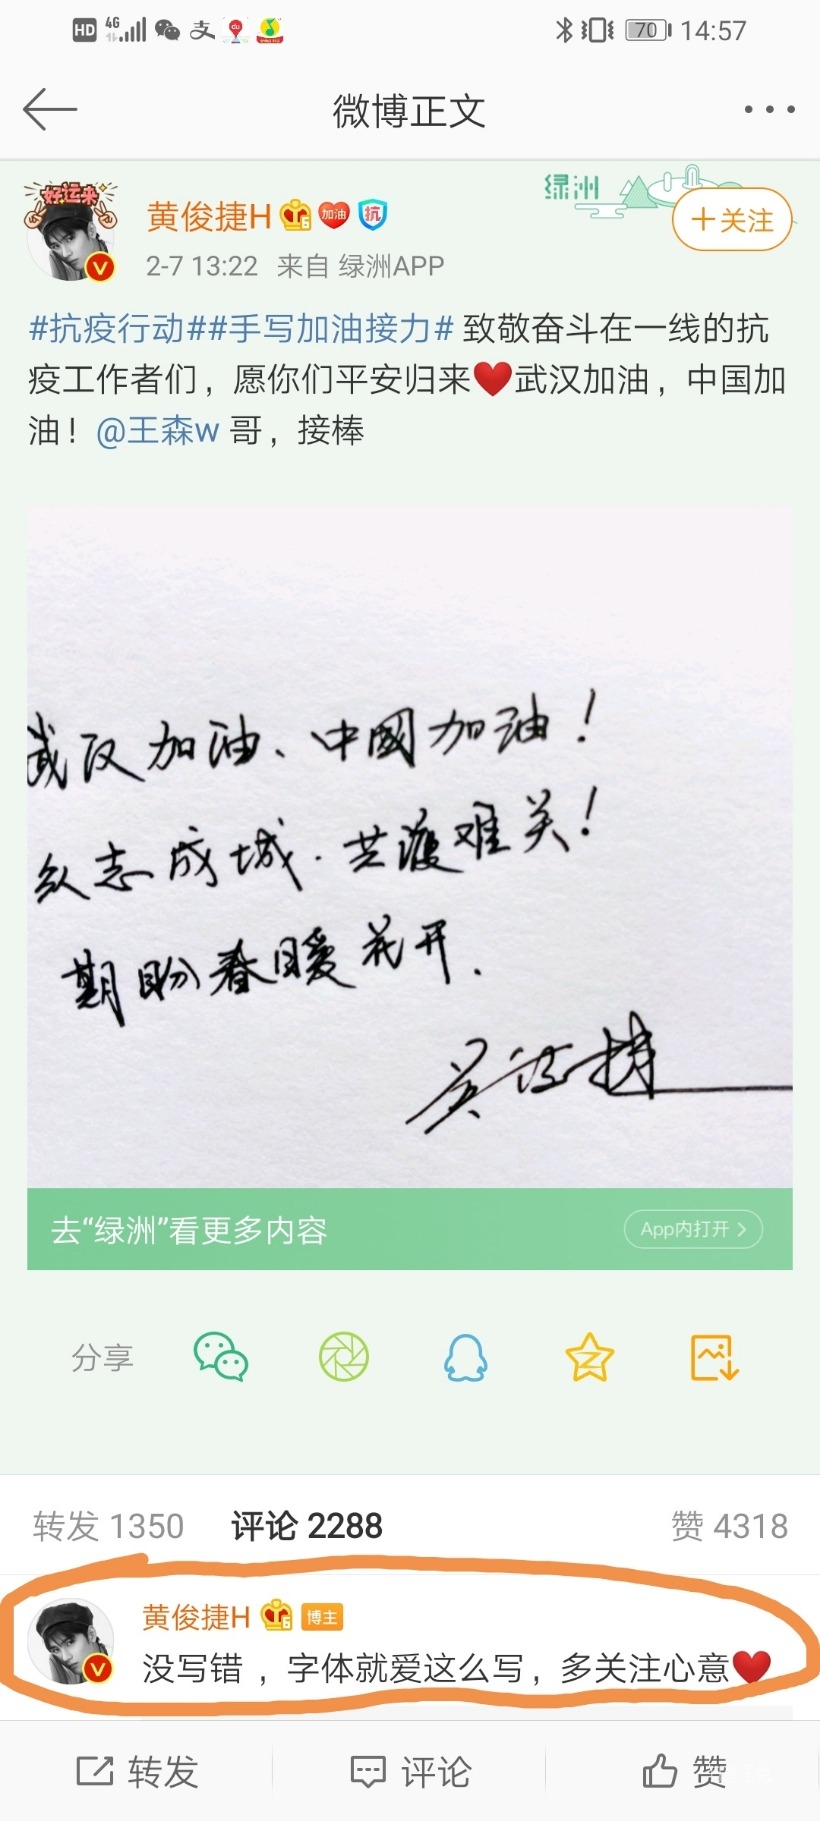 HD 4G 70 14:57
微博正文
好运来
绿洲
黄俊捷H 加油 抗
+关注
2-7 13:22 来自 绿洲APP
#抗疫行动##手写加油接力# 致敬奋斗在一线的抗
疫工作者们，愿你们平安归来❤武汉加油，中国加
油！@王森w 哥，接棒
武汉加油、中國加油！
众志成城.共渡难关！
期盼春暖花开.
黄俊捷
去“绿洲”看更多内容
App内打开 >
分享
转发 1350 评论 2288 赞 4318
黄俊捷H 博主
没写错，字体就爱这么写，多关注心意❤
转发 评论 赞